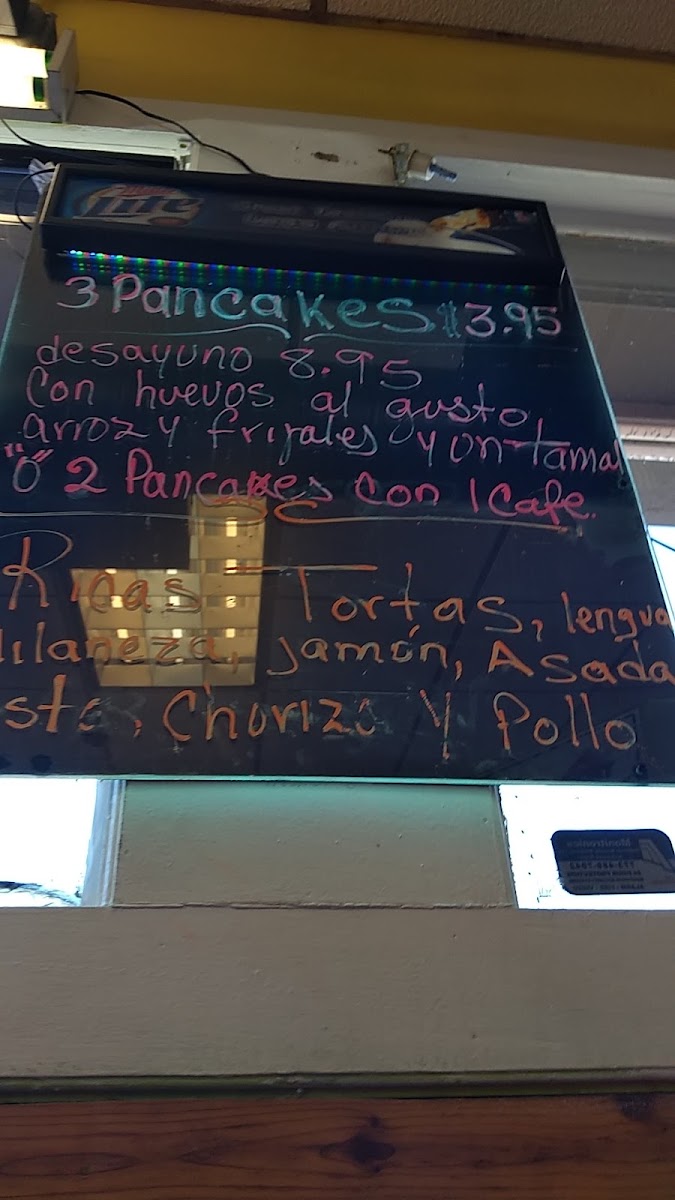 Lite
3 Pancakes $3.95
desayuno 8.95
Con huevos al gusto
arroz y frijales y un tamal
"O" 2 Pancakes con 1 Cafe.
Ricas Tortas, lengua
ilaneza, jamón, Asada
Chorizo Y Pollo